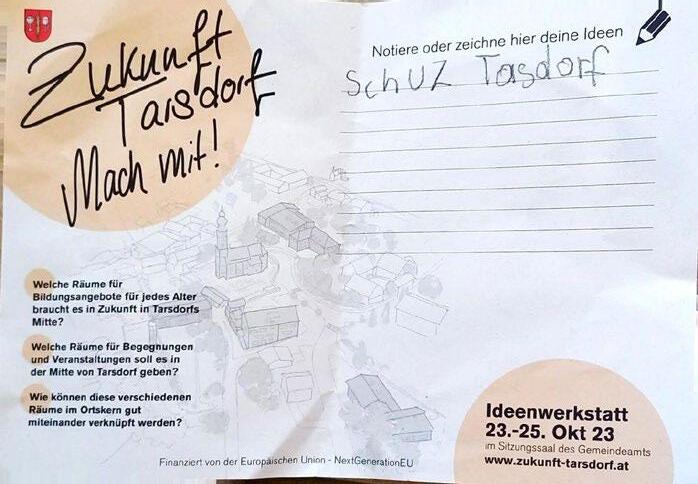 Zukunft
Tarsdorf
Mach mit!
Notiere oder zeichne hier deine Ideen
SchUZ Tasdorf
Welche Räume für
Bildungsangebote für jedes Alter
braucht es in Zukunft in Tarsdorfs
Mitte?
Welche Räume für Begegnungen
und Veranstaltungen soll es in
der Mitte von Tarsdorf geben?
Wie können diese verschiedenen
Räume im Ortskern gut
miteinander verknüpft werden?
Ideenwerkstatt
23.-25. Okt 23
im Sitzungssaal des Gemeindeamts
www.zukunft-tarsdorf.at
Finanziert von der Europäischen Union - NextGenerationEU